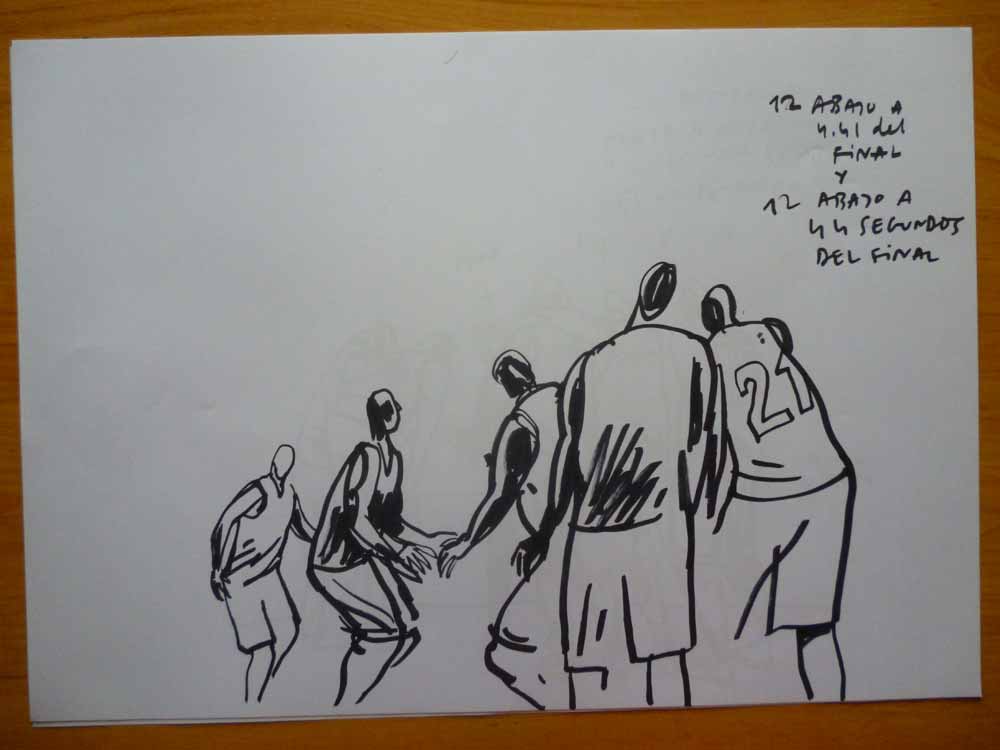 12 ABAJO A
4.41 del
FINAL
Y
12 ABAJO A
44 SEGUNDOS
DEL FINAL
21